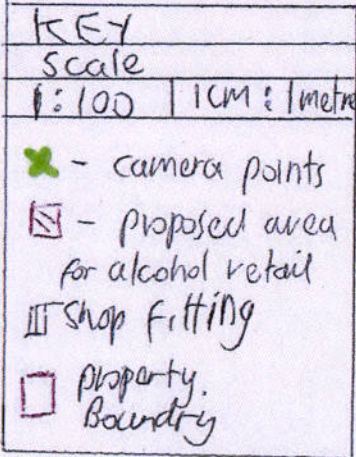 KEY
scale
1:100 1CM : 1metre
- camera points
- proposed area
for alcohol retail
Shop fitting
property.
Boundry